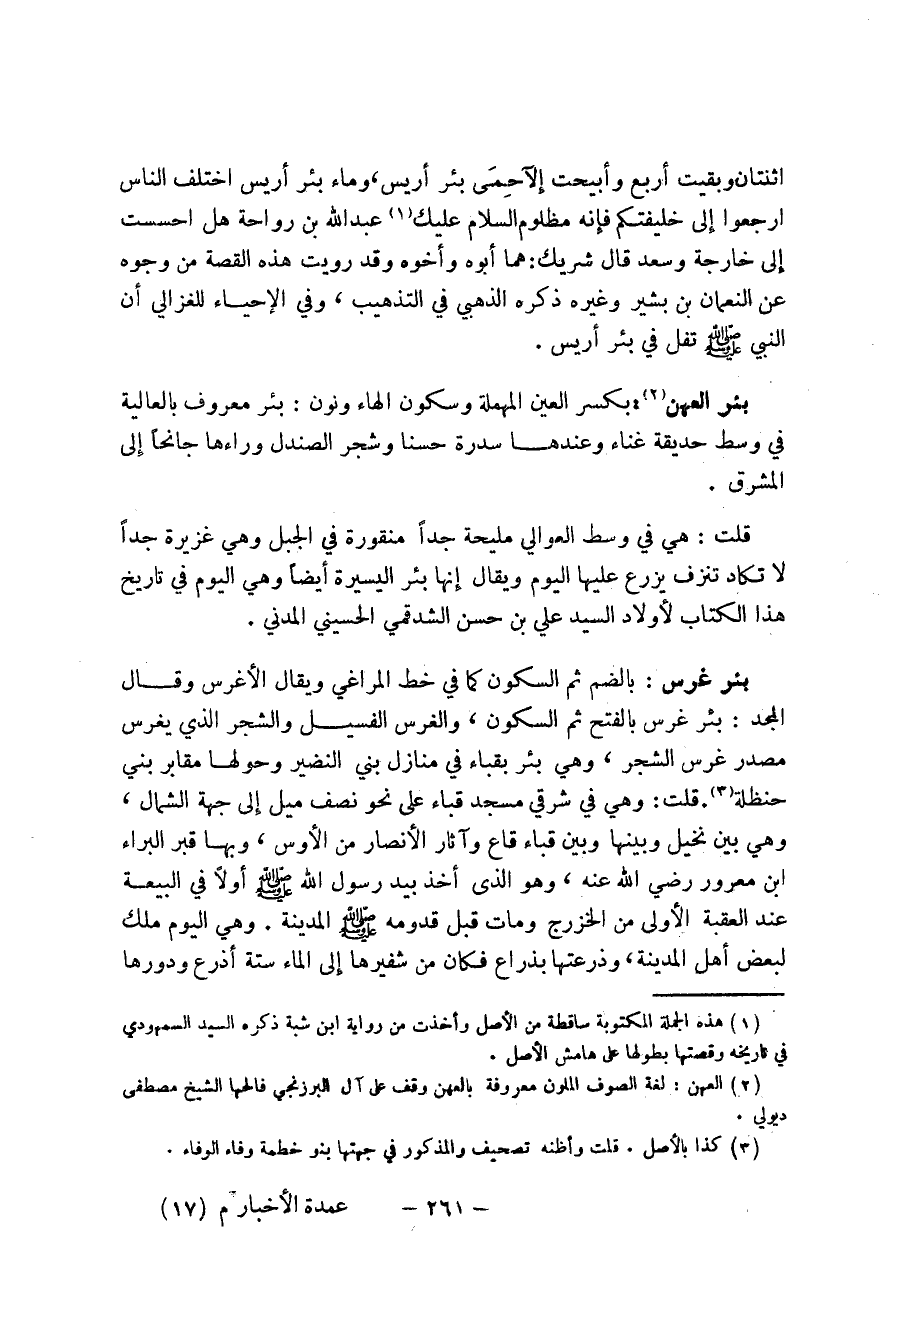 اثنتان وبقيت أربع وأبيحت إلآحِمَى بئر أريس، وماء بئر أريس اختلف الناس
ارجعوا إلى خليفتكم فإنه مظلوم السلام عليك(١) عبدالله بن رواحة هل احسست
إلى خارجة وسعد قال شريك: هما أبوه وأخوه وقد رويت هذه القصة من وجوه
عن النعمان بن بشير وغيره ذكره الذهبي في التذهيب ، وفي الإحياء للغزالي أن
النبي ﷺ تفل في بئر أريس .
بئر العهن(٢): بكسر العين المهملة وسكون الهاء ونون : بئر معروف بالعالية
في وسط حديقة غناء وعندها سدرة حسنا وشجر الصندل وراءها جانحاً إلى
المشرق .
قلت : هي في وسط العوالي مليحة جداً منقورة في الجبل وهي غزيرة جداً
لا تكاد تنزف يزرع عليها اليوم ويقال إنها بئر اليسيرة أيضاً وهي اليوم في تاريخ
هذا الكتاب لأولاد السيد علي بن حسن الشدقمي الحسيني المدني .
بئر غرس : بالضم ثم السكون كما في خط المراغي ويقال الأغرس وقال
المجد : بئر غرس بالفتح ثم السكون ، والغرس الفسيل والشجر الذي يغرس
مصدر غرس الشجر ، وهي بئر بقباء في منازل بني النضير وحولها مقابر بني
حنظلة(٣). قلت: وهي في شرقي مسجد قباء على نحو نصف ميل إلى جهة الشمال ،
وهي بين نخيل وبينها وبين قباء قاع وآثار الأنصار من الأوس ، وبها قبر البراء
ابن معرور رضي الله عنه ، وهو الذى أخذ بيد رسول الله ﷺ أولاً في البيعة
عند العقبة الأولى من الخزرج ومات قبل قدومه ﷺ المدينة . وهي اليوم ملك
لبعض أهل المدينة، وذرعتها بذراع فكان من شفيرها إلى الماء ستة أذرع ودورها
(١) هذه الجملة المكتوبة ساقطة من الأصل وأخذت من رواية ابن شبة ذكره السيد السمهودي
في تاريخه وقصتها بطولها على هامش الأصل .
(٢) العهن : لغة الصوف الملون معروفة بالعهن وقف على آل البرزنجي فالحها الشيخ مصطفى
ديولي .
(٣) كذا بالأصل . قلت وأظنه تصحيف والمذكور في جهتها بنو خطمة وفاء الوفاء .
– ٢٦١ – عمدة الأخبار م (١٧)